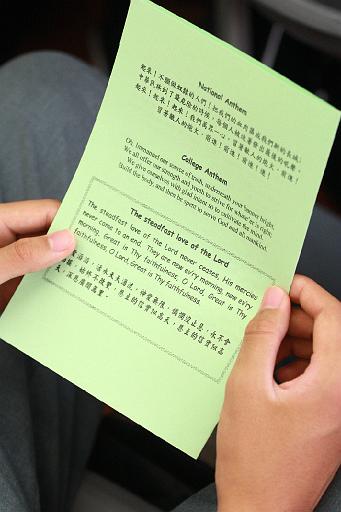 National Anthem
起來！不願做奴隸的人們！把我們的血肉築成我們新的長城！
中華民族到了最危險的時候，每個人被迫著發出最後的吼聲。
起來！起來！起來！我們萬眾一心，冒著敵人的炮火，前進，
冒著敵人的炮火，前進！前進！前進！進！
College Anthem
Oh, Immanent one source of truth, underneath your banner bright,
We all offer our strength and youth to strive for what is right,
We give ourselves with glad intent so to cultivate the mind,
Build the body, and then be spent to serve God and all mankind.
The steadfast love of the Lord
The steadfast love of the Lord never ceases, His mercies
never come to an end. They are new ev'ry morning, new ev'ry
morning, Great is Thy faithfulness, O Lord, Great is Thy
faithfulness, O Lord, Great is Thy faithfulness.